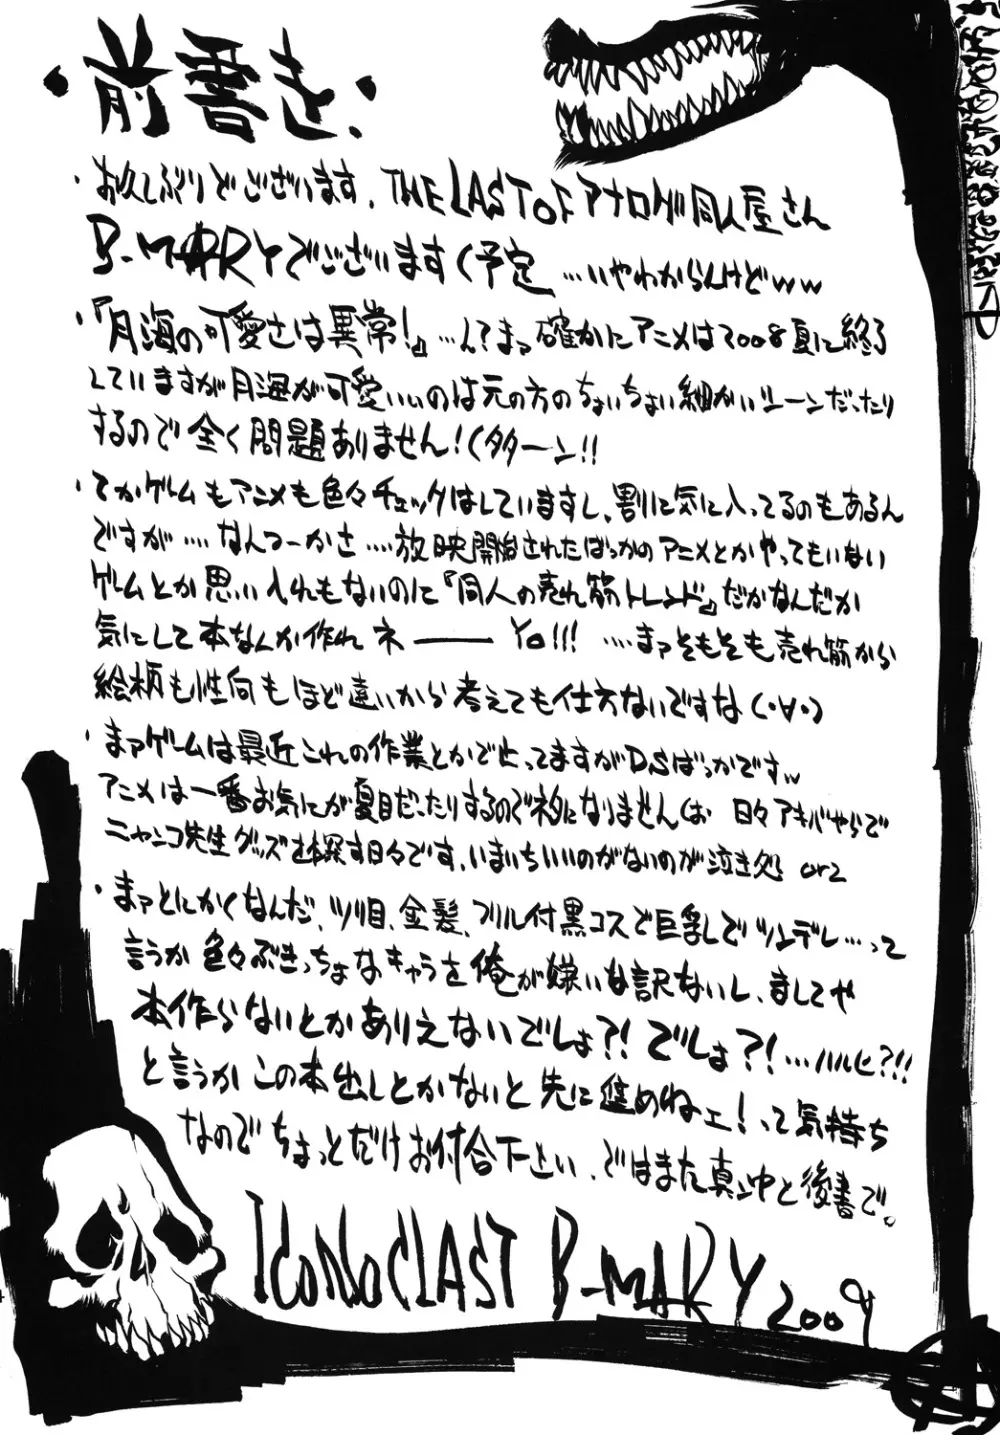 ・前書き・
・お久しぶりでございます、THE LAST OF アナログ同人屋さん
B-MARYでございます(予定 …いやわからんけどww
・『月海の可愛さは異常!』…ん?まァ確かにアニメは2008夏に終了
していますが月海が可愛いぃのは元の方のちょいちょい細かいシーンだったり
するので全く問題ありません!(タターン!!
・てかゲームもアニメも色々チェックはしていますし、割に気に入ってるのもあるん
ですが‥‥なんつーかさ‥‥放映開始されたばっかのアニメとかやってもいない
ゲームとか思い入れもないのに『同人の売れ筋トレンド』だかなんだか
気にして本なんか作れネ――Yo!!! ‥‥まァそもそも売れ筋から
絵柄も性向もほど遠いから考えても仕方ないですな(・∀・)
・まァゲームは最近これの作業とかで止ってますがDSばっかですw
アニメは一番お気にが夏目だったりするのでネタになりませんしお 日々アキバやらで
ニャンコ先生グッズを探す日々です、いまいちいいのがないのが泣き処 orz
・まァとにかくなんだ、ツリ目、金髪、フリル付黒コスで巨乳でツンデレ…って
言うか色々ぶきっちょなキャラを俺が嫌いな訳ないし、ましてや
本作らないとかありえないでしょ?!でしょ?!…ハルヒ?!!
と言うかこの本出しとかないと先に進めねェ!って気持ち
なのでちょっとだけお付合下さい、ではまた真ン中と後書で。
ICONOCLAST B-MARY 2009